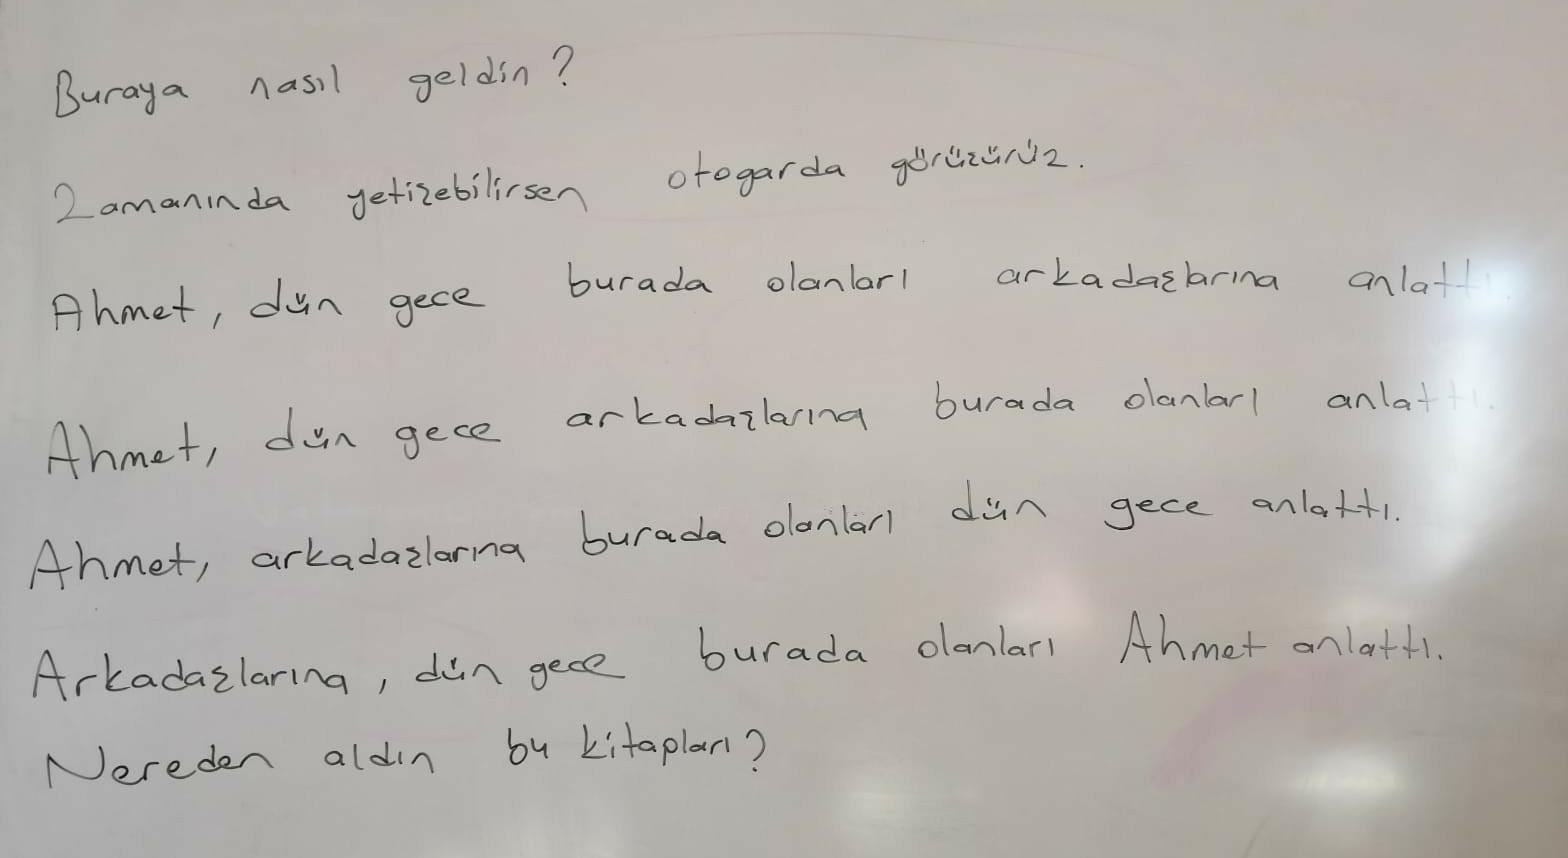 Buraya nasıl geldin?
Zamanında yetişebilirsen otogarda görüşürüz.
Ahmet, dün gece burada olanları arkadaşlarına anlattı.
Ahmet, dün gece arkadaşlarına burada olanları anlattı.
Ahmet, arkadaşlarına burada olanları dün gece anlattı.
Arkadaşlarına, dün gece burada olanları Ahmet anlattı.
Nereden aldın bu kitapları?